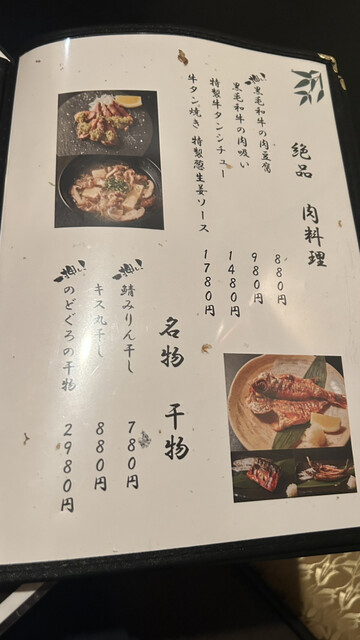 絶品 肉料理
黒毛和牛の肉豆腐 880円
黒毛和牛の肉吸い 980円
特製牛タンシチュー 1480円
牛タン焼き 特製葱生姜ソース 1780円
名物 干物
鯖みりん干し 780円
キス丸干し 880円
のどぐろの干物 2980円